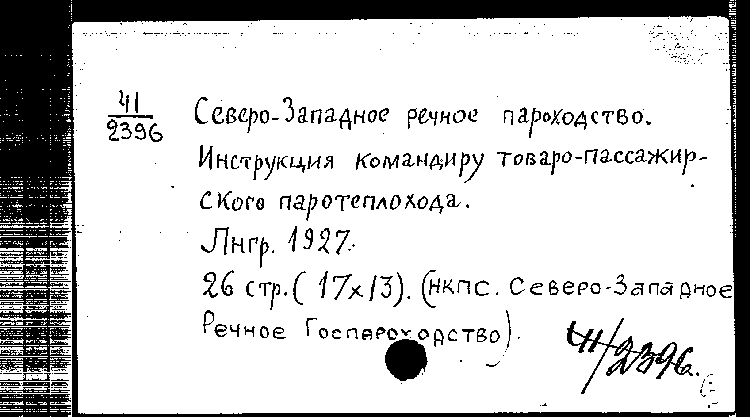 41
2396
Северо-Западное речное пароходство.
Инструкция командиру товаро-пассажир-
ского паротеплохода.
Лнгр. 1927.
26 стр. (17x13). (НКПС. Северо-Западное
Речное Госпароходство).
41/2396.